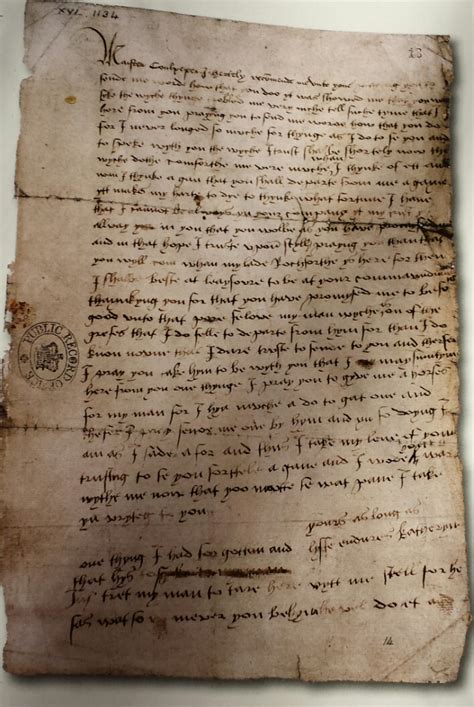 XVI. 1134
Master Coulpeper I hertely recomende me unto you praying you to
sende me worde how that you doo yt was showed me that you was
sike the wyche thynge trobled me very muche tell suche tyme that I
here from you praying you to send me worde how that you do
for I never longed so muche for thynge as I do to se you and
to speke wyth you the wyche I trust shal be shortely now the
wyche dothe comforthe me verie muche whan I thynke of ett and
wan I thynke agan that you shall departe from me agane
ytt makes my harte to dye to thynke what fortune I have
that I cannot be always yn your company yt my trust ys
allway in you that you wolbe as you have promysed me
and in that hope I truste upon styll praying you than that
you wyll com whan my lade Rochforthe ys here for then
I shalbe beste at leaysoure to be at your commaundmant
thankyng you for that you have promysed me to be so
good unto that pore felowe my man wyche on of the
grefes that I do felle to departe from hym for than I do
know noone that I dare truste to sende to you and therfor
I pray you take hym to be wyth you that I may sumtym
here from you one thynge I pray you to geve me a horse
for my man for I hyd muche a do to gat one and
therfer I pray sende me one by hym and yn so doying I
am as I sade afor and thus I take my leve of you
trusting to se you shorttele agane and I wode you was
wythe me now that yoo maitte se wat pane I take
yn wryteg to you
yours as long as
lyffe endures
Katheryn
one thyng I had forgotten and
that hys to
Ins tret my man to tare here wytt me still for he
sas wat so mever you bed hym he wel do et and
PUBLIC RECORD OFFICE
14